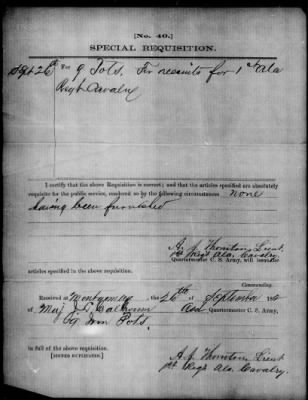 [No. 40.]
SPECIAL REQUISITION.
Sept 26th For 9 Pots. For recruits for 1st Ala
Regt Cavalry
I certify that the above Requisition is correct; and that the articles specified are absolutely
requisite for the public service, rendered so by the following circumstances none
having been furnished
A. J. Thornton Lieut
1st Regt Ala. Cavalry.
Quartermaster C. S. Army, will issue the
articles specified in the above requisition.
Commanding.
Received at Montgomery the 26th of September
of Maj J. L. Calhoun Quartermaster C. S. Army,
9 Iron Pots.
in full of the above requisition.
[SIGNED DUPLICATES.]
A. J. Thornton Lieut
1st Regt Ala. Cavalry.